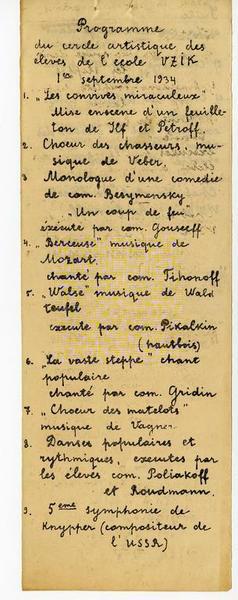 Programme
du cercle artistique des
élèves de l'école VZIK
1er septembre 1934
1. „Les convives miraculeux"
Mise enscène d'un feuille-
ton de Ilf et Petroff.
2. Choeur des chasseurs, mu-
sique de Veber.
3 Monologue d'une comédie
de com. Besymensky
„Un coup de feu"
éxécuté par com. Gouseeff
4. „Berceuse" musique de
Mozart
chanté par com. Tihonoff
5. „Walse" musique de Wald
teufel
execute par com. Pikalkin
(hautbois)
6. „La vaste steppe" chant
populaire
chanté par com. Gridin
7. „Choeur des matelots"
musique de Vagner.
8. Danses populaires et
rythmiques, executes par
les élèves com. Poliakoff
et Roudmann.
9. 5ème symphonie de
Knypper (compositeur de
l'USSR)